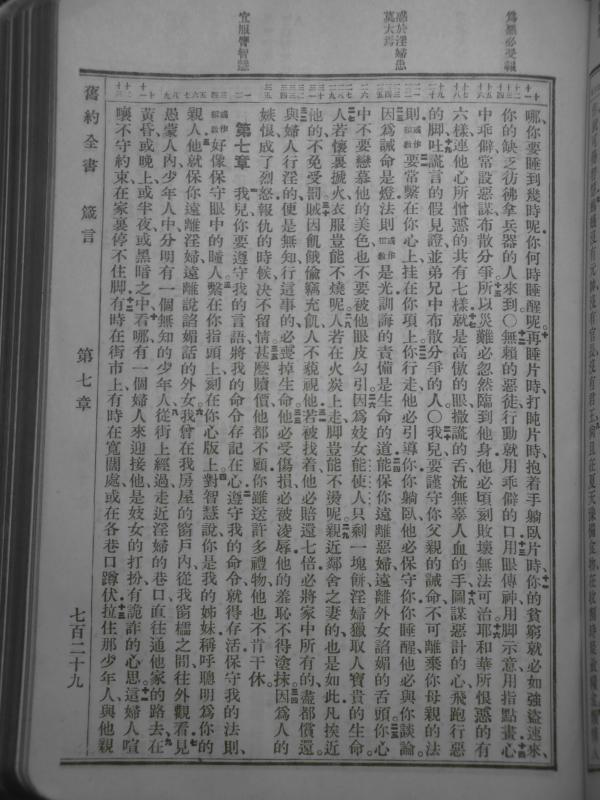 爲惡必受報
惑於淫婦患莫大焉
宜服膺智慧
哪你要睡到幾時呢你何時睡醒呢再睡片時打盹片時抱着手躺臥片時你的貧窮就必如強盜速來
你的缺乏彷彿拿兵器的人來到○無賴的惡徒行動就用乖僻的口用眼傳神用脚示意用指點畫心
中乖僻常設惡謀布散分爭所以災難必忽然臨到他身他必頃刻敗壞無法可治耶和華所恨惡的有
六樣連他心所憎惡的共有七樣就是高傲的眼撒謊的舌流無辜人血的手圖謀惡計的心飛跑行惡
的脚吐謊言的假見證並弟兄中布散分爭的人○我兒要謹守你父親的誡命不可離棄你母親的法
則或作指教要常繫在你心上挂在你項上你行走他必引導你你躺臥他必保守你你睡醒他必與你談論
因爲誡命是燈法則或作指教是光訓誨的責備是生命的道能保你遠離惡婦遠離外女諂媚的舌頭你心
中不要戀慕他的美色也不要被他眼皮勾引因爲妓女能使人只剩一塊餅淫婦獵取人寶貴的生命
人若懷裏搋火衣服豈能不燒呢人若在火炭上走脚豈能不燙呢親近鄰舍之妻的也是如此凡挨近
他的不免受罰賊因飢餓偷竊充飢人不藐視他若被找着他必賠還七倍必將家中所有的盡都償還
與婦人行淫的便是無知行這事的必喪掉生命他必受傷損必被凌辱他的羞恥不得塗抹因爲人的
嫉恨成了烈怒報仇的時候決不留情甚麼贖價他都不顧你雖送許多禮物他也不肯干休
第七章 我兒你要遵守我的言語將我的命令存記在心遵守我的命令就得存活保守我的法則
或作指教好像保守眼中的瞳人繫在你指頭上刻在你心版上對智慧說你是我的姊妹稱呼聰明爲你的
親人他就保你遠離淫婦遠離說諂媚話的外女我曾在我房屋的窗戶內從我窗櫺之間往外觀看見
愚蒙人內少年人中分明有一個無知的少年人從街上經過走近淫婦的巷口直往通他家的路去在
黃昏或晚上或半夜或黑暗之中看哪有一個婦人來迎接他是妓女的打扮有詭詐的心思這婦人喧
嚷不守約束在家裏停不住脚有時在街市上有時在寬闊處或在各巷口蹲伏拉住那少年人與他親
舊約全書 箴言 第七章 七百二十九